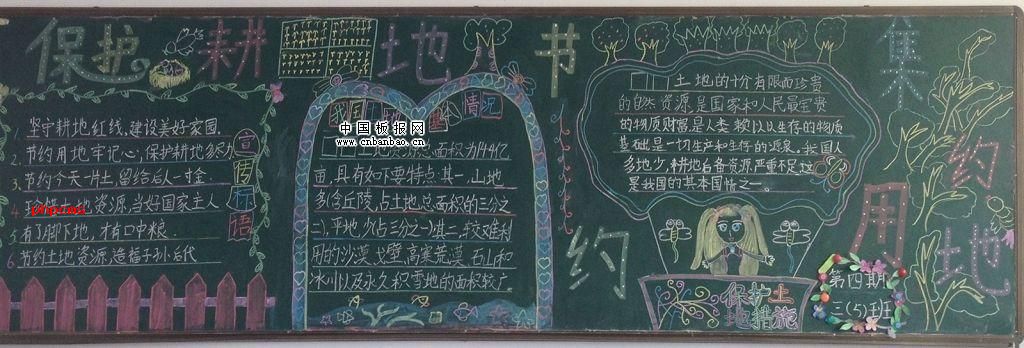 保护耕地 节约集约用地
1. 坚守耕地红线,建设美好家园.
2. 节约用地牢记心,保护耕地多尽力
3. 节约今天一片土,留给后人一寸金
4. 地资源,当好国家主人
5. 有了脚下地,才有口中粮.
6. 节约土地资源,造福子孙后代
宣传标语
我国
本情况
中国板报网
www.cnbanbao.cn
土地资源总面积为144亿
面,具有如下要特点:其一,山地
多(含丘陵,占土地总面积的三分之
二),平地少(占三分之一)其二,较难利
用的沙漠,戈壁,高寒荒漠,石山和
冰川以及永久积雪地的面积较广。
土地的十分有限而珍贵
的自然资源,是国家和人民最宝贵
的物质财富是人类赖以以生存的物质
基础是一切生产和生存的源泉,我国人
多地少,耕地后备资源严重不足,这
是我国的其本国情之一。
保护土
地措施
第四期
三(5)班